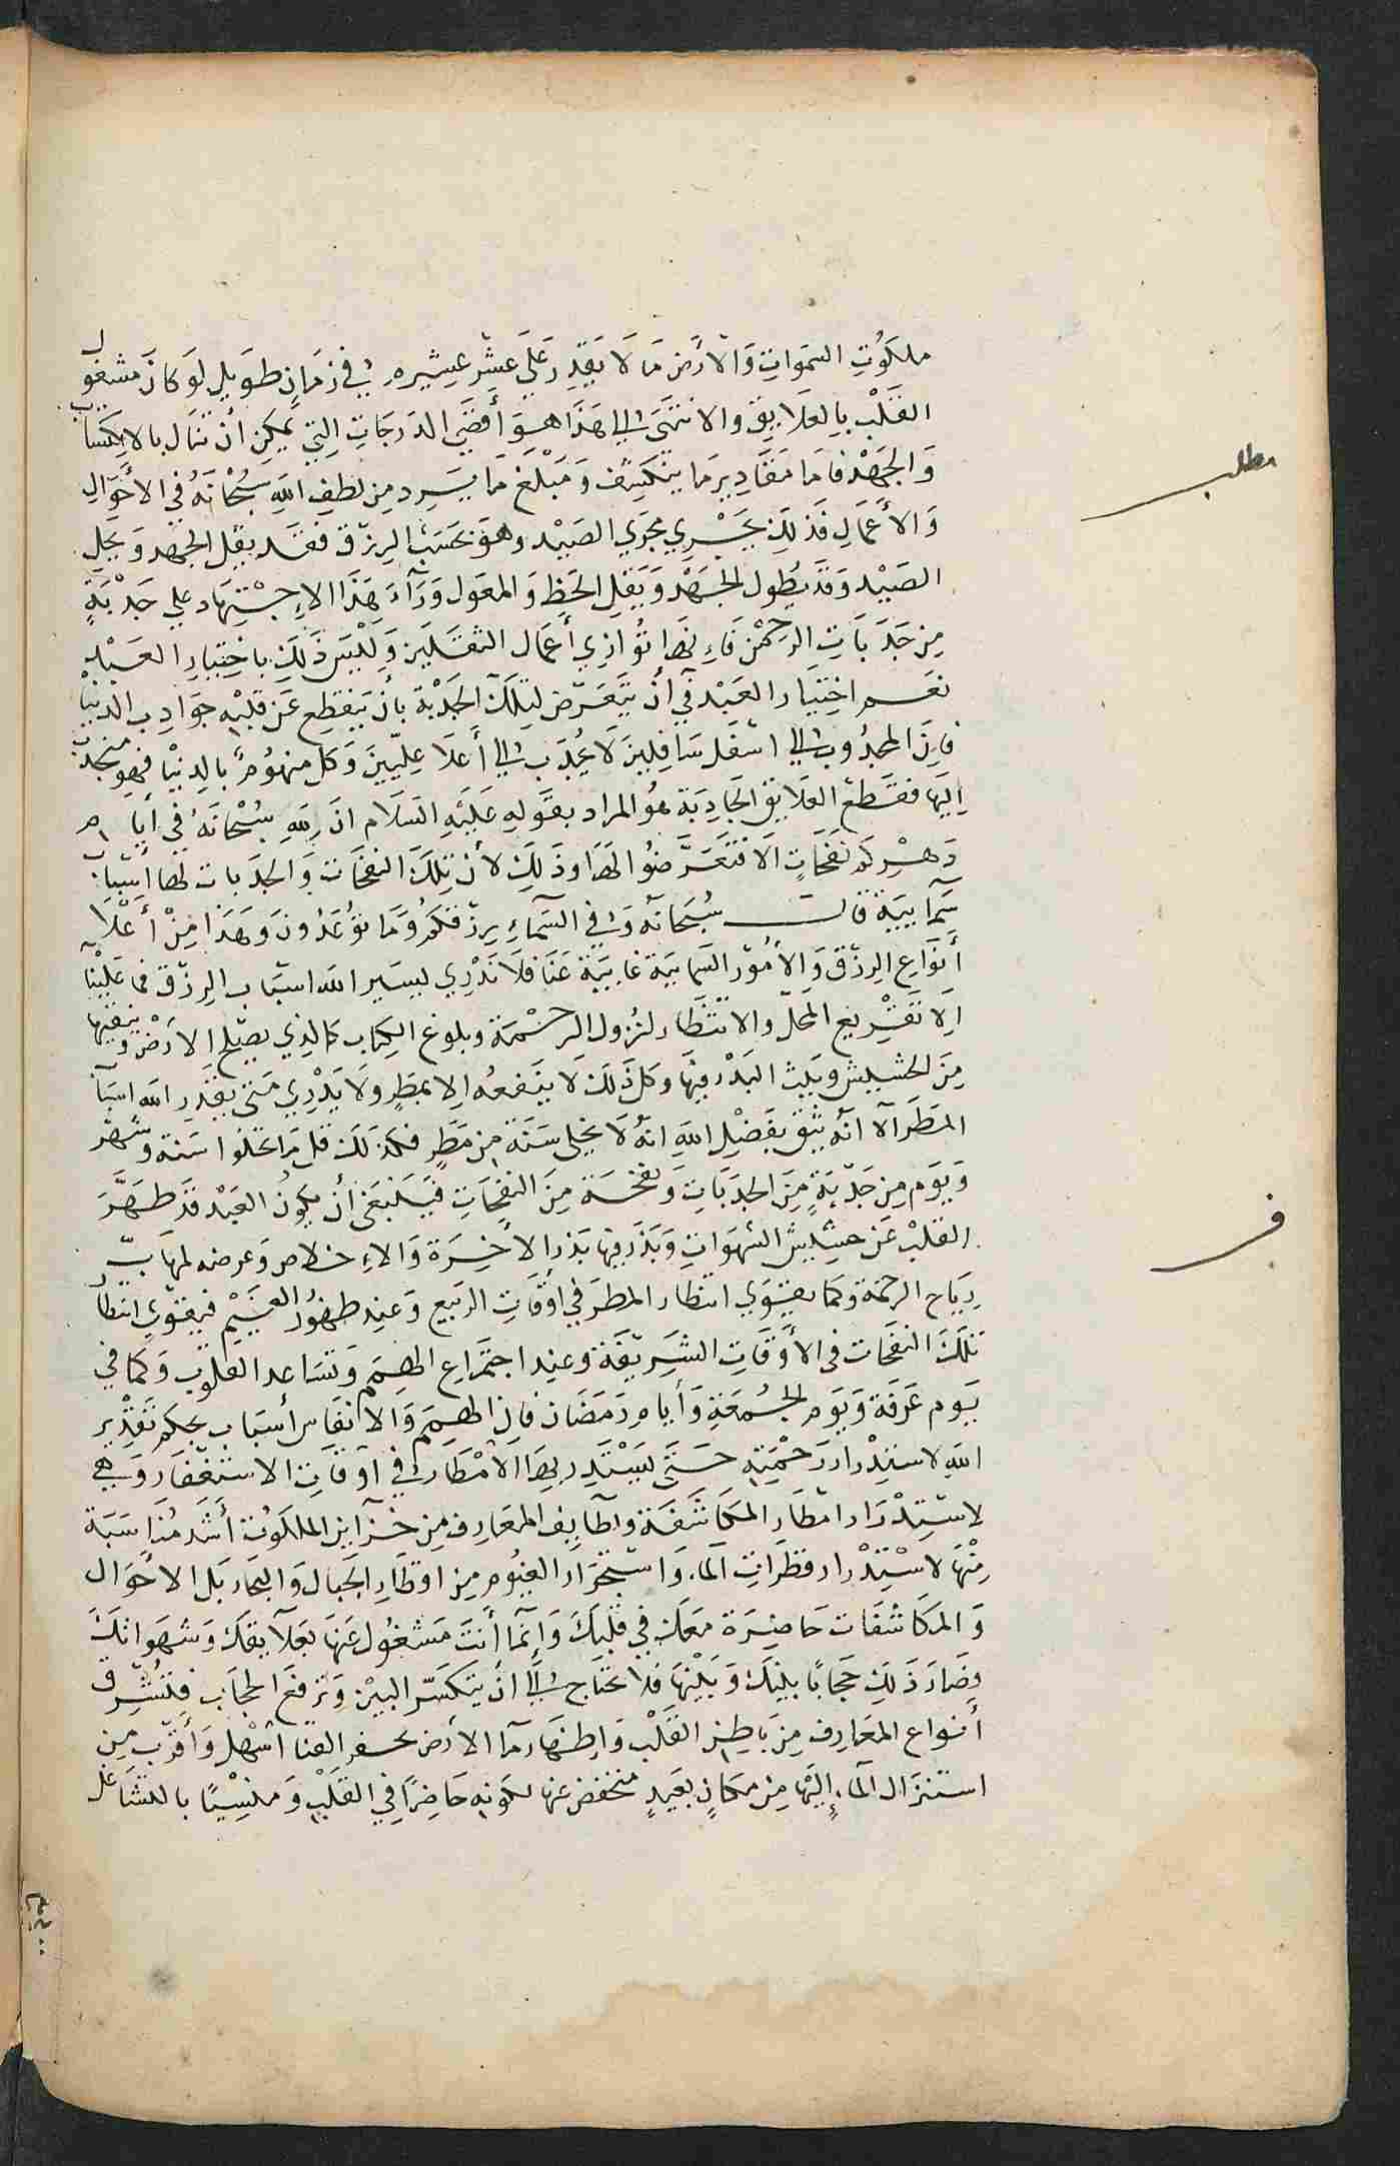 ملكوت السموات والأرض ما لا يقدر على عشر عشيره في زمان طويل لو كان مشغول
القلب بالعلايق والانتهى الى هذا هو أقصى الدرجات التي يمكن ان تنال بالاكتساب
والجهد فاما مقادير ما ينكشف ومبلغ ما يرد من لطف الله سبحانه في الأحوال
والأعمال فذلك يجري مجرى الصيد وهو بحسب الرزق فقد يقل الجهد ويجل
الصيد وقد يطول الجهد ويقل الحظ والمعول ورآء هذا الاجتهاد علي جدبة
من جدبات الرحمن فإنها توازي أعمال الثقلين وليس ذلك باختيار العبد
نعم اختيار العبد في أن يتعرض لتلك الجدبة بأن ينقطع عن قلبه جوادب الدنيا
فان المجدوب الى اسفل سافلين لا يجدب الى أعلا عليين وكل منهوم بالدنيا فهو منجدب
اليها فقطع العلايق الجادبة هو المراد بقوله عليه السلام ان لله سبحانه في أيام
دهركم نفحات الا فتعرضوا لها وذلك لأن تلك النفحات والجدبات لها اسباب
سمآييية قال سبحانه وفي السمآء رزقكم وما توعدون وهذا من أعلا
أنواع الرزق والأمور السمايية غايبة عنا فلا ندري ليسير الله اسباب الرزق فما علينا
الا تفريع المحل والانتظار لنزول الرحمة وبلوغ الكتاب كالذي يصلح الارض وينقيها
من الحشيش ويبث البدر فيها وكل ذلك لا ينفعه الا بمطر ولا يدري متى يقدر الله اسبآ
المطر الا انه يثق بفضل الله انه لا يخلي سنة من مطر فكذلك قل ما تخلوا سنة وشهر
ويوم من جدبة من الجدبات ونفحة من النفحات فينبغى أن يكون العبد قد طهر
القلب عن حشيش الشهوات وبذر فيها بذر الأخرة والاخلاص وعرضه لمهاب
رياح الرحمة وكما يقوي انتظار المطر في أوقات الربيع وعند ظهور الغيم فيقوي انتظا
تلك النفحات فى الأوقات الشريفة وعند اجتماع الهمم وتساعد القلوب وكما في
يوم عرفة ويوم الجمعة وأيام رمضان فان الهمم والانفاس أسباب بحكم تقدير
الله لاستدرار رحمته حتى ليستدر بها الأمطار في اوقات الاستغفار وهي
لاستدرار امطار المكاشفة ولطآيف المعارف من خزآين الملكوت أشد مناسبة
منها لاستدرار قطرات المآ، واستجرار الغيوم من اوطار الجبال والبحار بل الأحوال
والمكاشفات حاضرة معك في قلبك وانما أنت مشغول عنها بعلآيقك وشهواتك
وصار ذلك حجابا بينك وبينها فلا تحتاج الى ان يتكسر البين وترفع الحجاب فتشرق
أنواع المعارف من باطن القلب واظهار مآ الأرض بحفر القنا أسهل وأقرب من
استنزال المآء إليها من مكان بعيد منخفض عنها لكونه حاضرا في القلب ومنسيا بالتشاغل
مطلب
ف